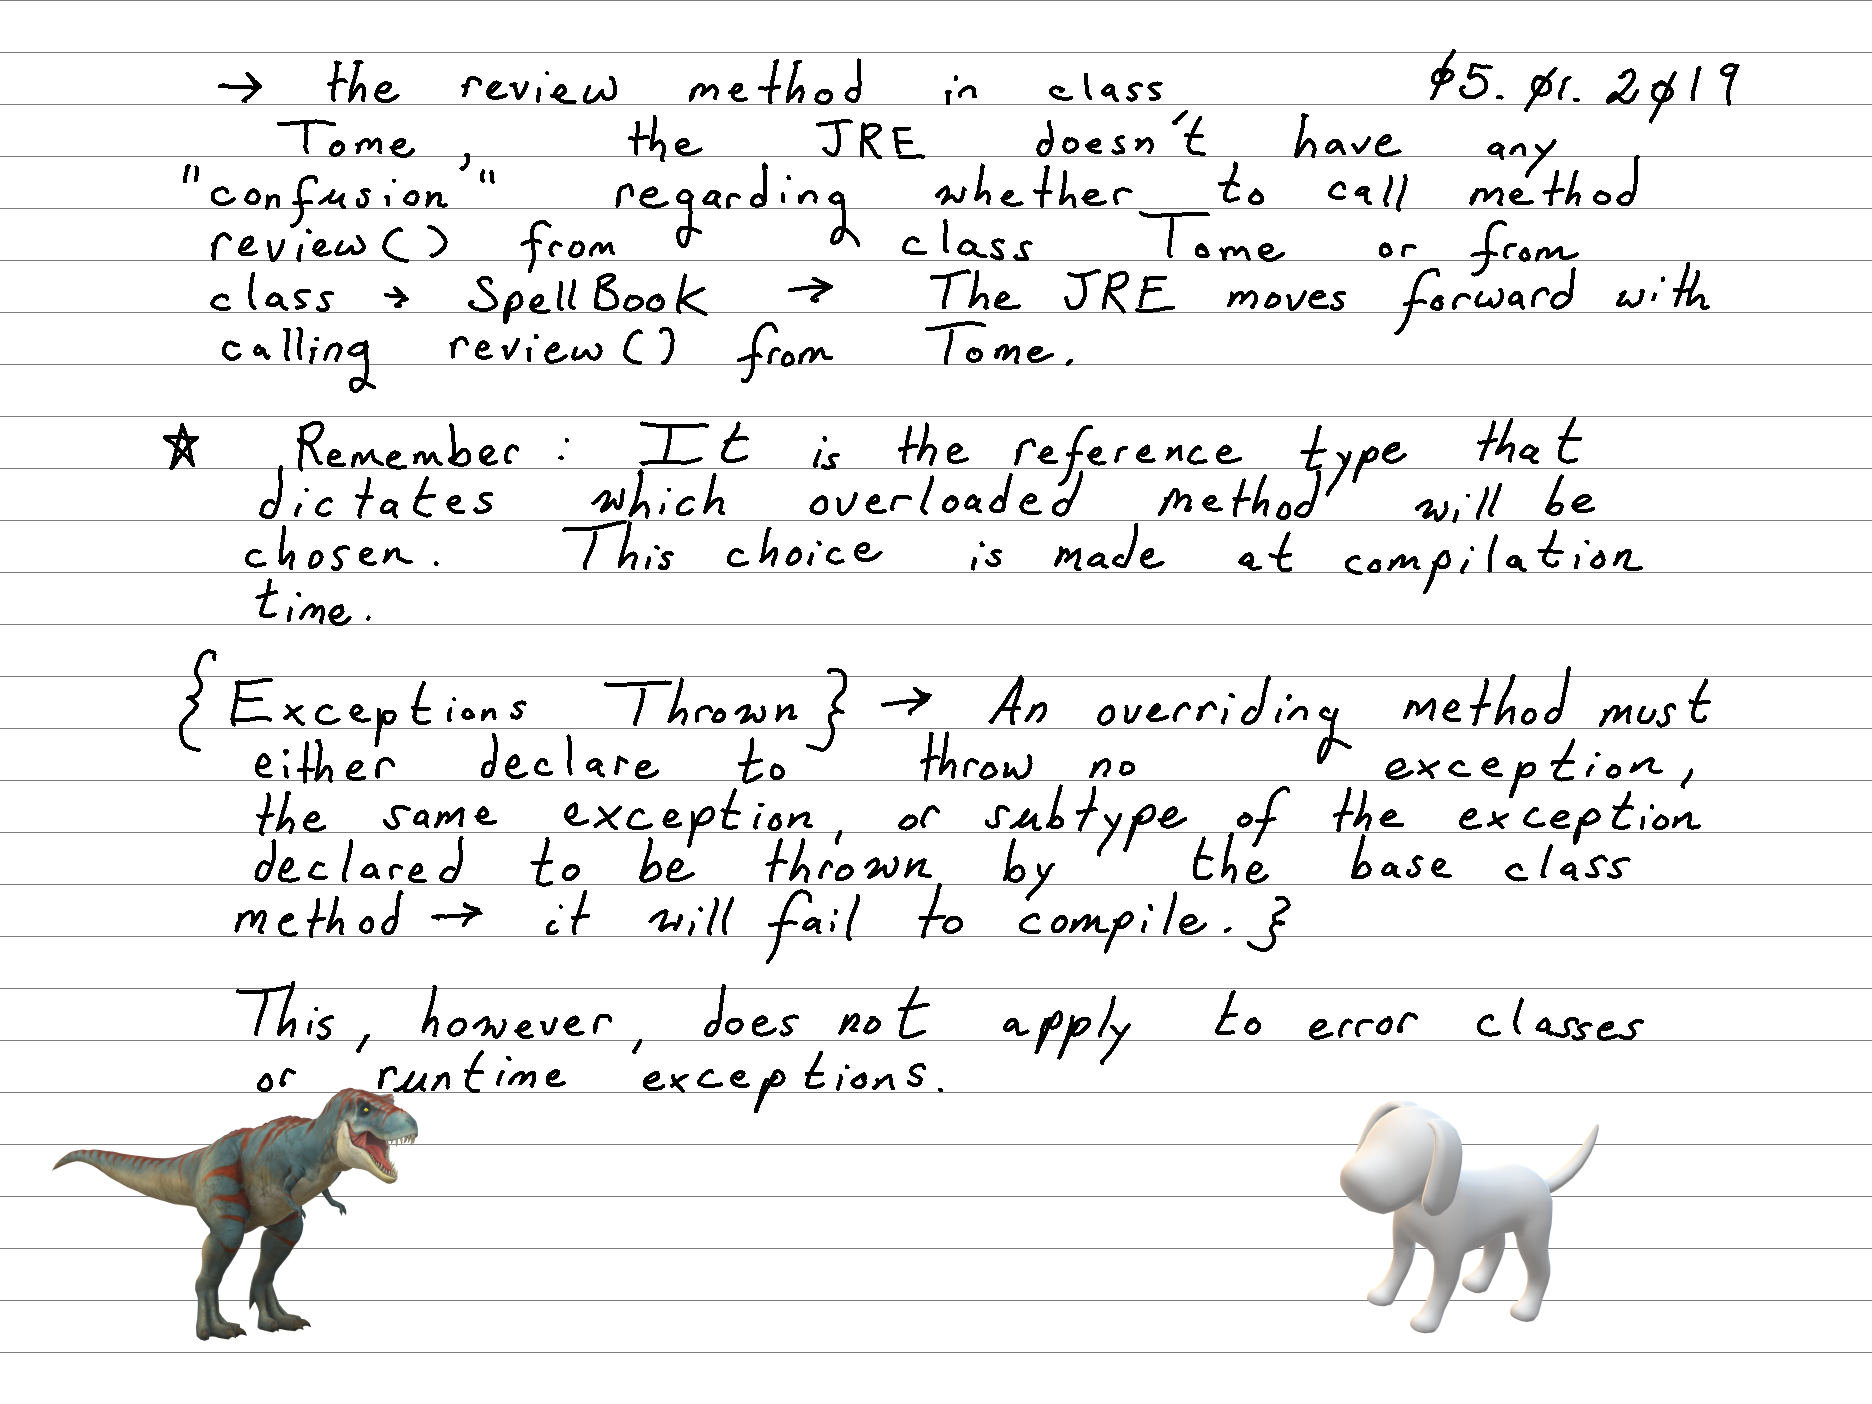 → the review method in class 05.01.2019
Tome, the JRE doesn't have any
"confusion" regarding whether to call method
review() from class Tome or from
class → SpellBook → The JRE moves forward with
calling review() from Tome.
☆ Remember: It is the reference type that
dictates which overloaded method will be
chosen. This choice is made at compilation
time.
{Exceptions Thrown} → An overriding method must
either declare to throw no exception,
the same exception, or subtype of the exception
declared to be thrown by the base class
method → it will fail to compile. }
This, however, does not apply to error classes
or runtime exceptions.